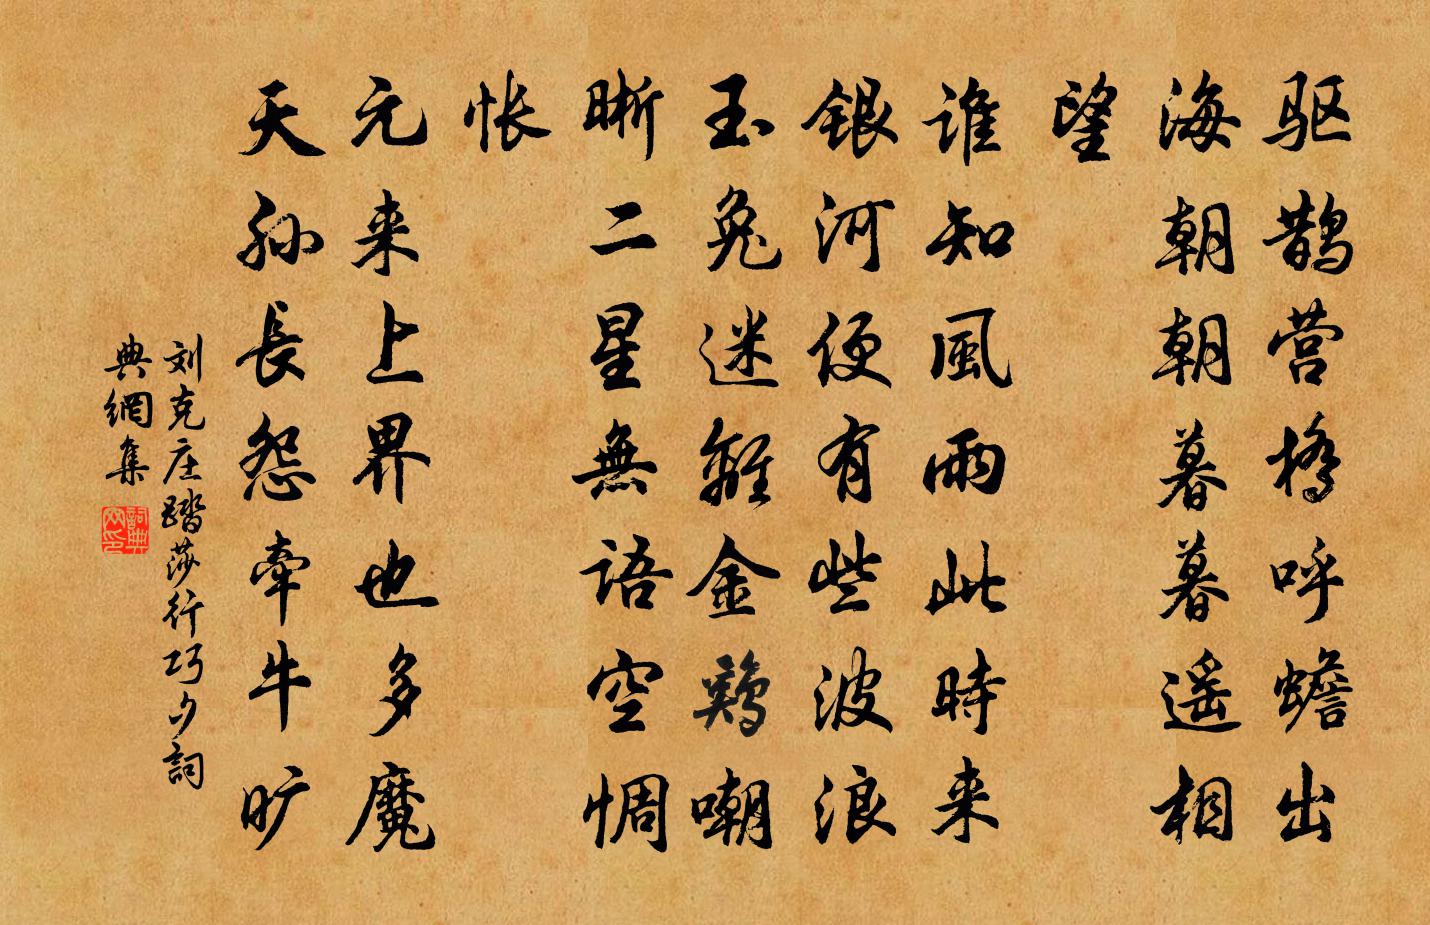 驱鹊营橋呼蟾出
海朝朝暮暮遥相
望
谁知風雨此時来
銀河便有些波浪
玉兔迷離金鷄嘲
晰二星無语空惆
怅
元来上界也多魔
天孙長怨牵牛旷
刘克庄踏莎行巧夕詞
典網集
詞典
网印